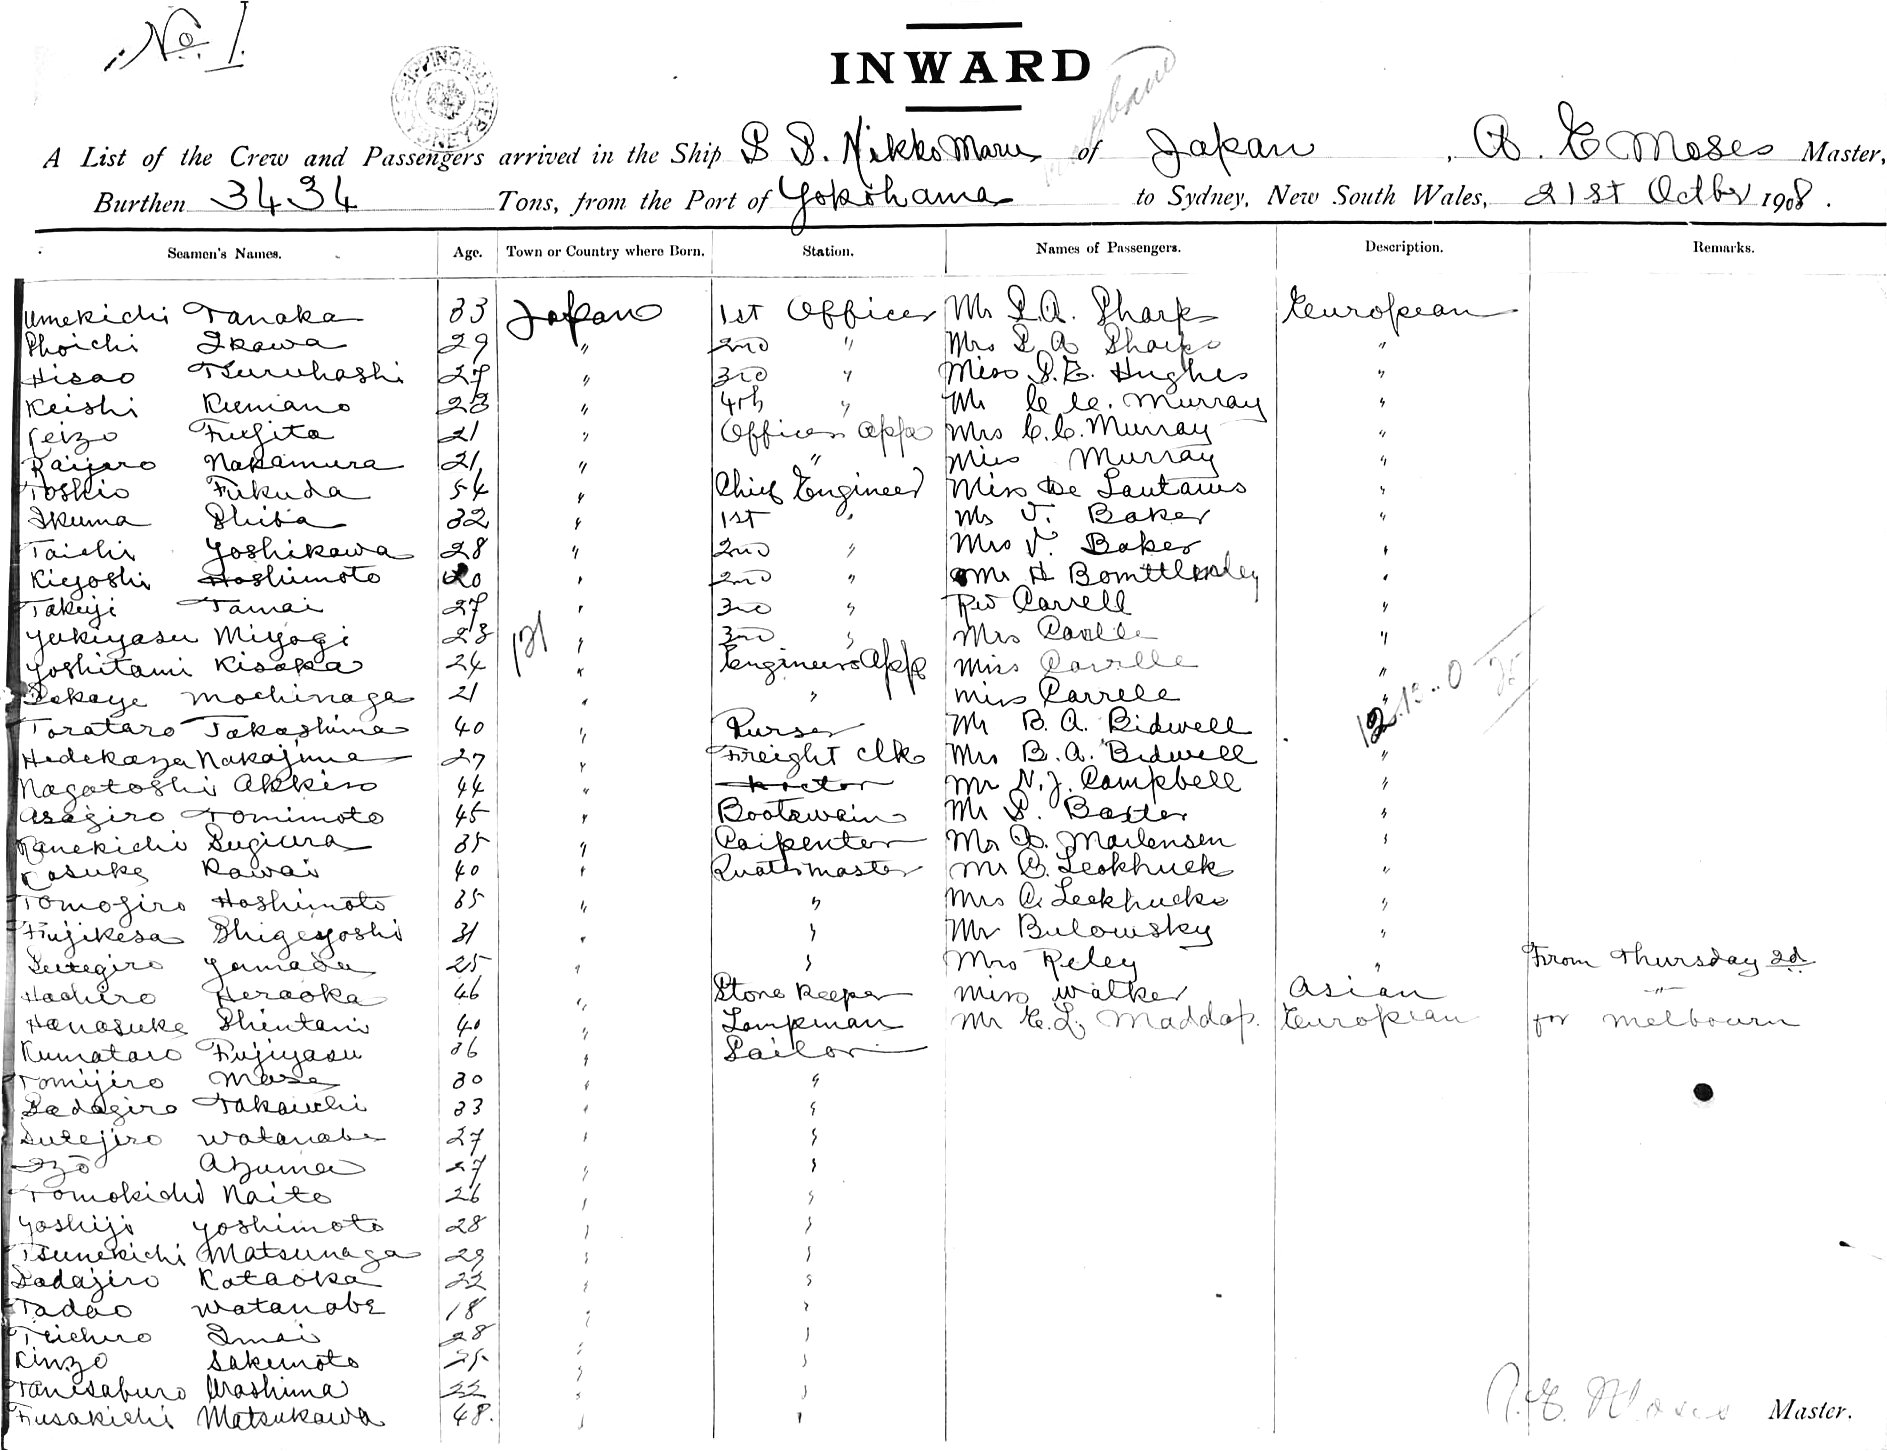 No. 1.
INWARD
A List of the Crew and Passengers arrived in the Ship S S. Nikko Maru of Japan, A. E Moses Master,
Burthen 3434 Tons, from the Port of Yokohama to Sydney, New South Wales, 21st Octbr 1908.
Seamen's Names. Age. Town or Country where Born. Station. Names of Passengers. Description. Remarks.
Umekichi Tanaka 33 Japan 1st Officer Mr S.A. Sharp European
Shoichi Ikawa 29 " 2nd " Mrs S A Sharp "
Hisao Tsuruhashi 27 " 3rd " Miss S.E. Hughes "
Keishi Kumano 23 " 4th " Mr C. C. Murray "
Seizo Fujita 21 " Officer App Mrs C.C. Murray "
Raijiro Nakamura 21 " " Miss Murray "
Toshio Fukuda 54 " Chief Engineer Miss De "
Ikuma Shiba 32 " 1st " Mr V. Baker "
Taichi Yoshikawa 28 " 2nd " Mrs V. Baker "
Kiyoshi Hashimoto 20 " 2nd " Mr H "
Takeji Tamai 27 " 3rd " Rev Carrell "
Yukiyasu Miyogi 23 121 " 3rd " Mrs "
Yoshitami Kisaka 24 " Engineers App Miss "
Mochinaga 21 " " Miss "
Torataro Takashima 40 " Purser Mr B. A. Bidwell
Hidekaza Nakajima 27 " Freight Clk Mrs B. A. Bidwell "
Nagatoshi 44 " Doctor Mr N. J. Campbell "
Asagiro Tomimoto 45 " Boatswain Mr S. Baxter "
Kanekichi Sugiura 35 " Carpenter Mr A. "
Kosuke Kawai 40 " Quatermaster Mr C. "
Tomogiro Hashimoto 35 " " Mrs C. "
Fujikesa Shigeyoshi 31 " " Mr Bulowsky "
Yamada 25 " " Mrs Reley " From Thursday Id
Hachiro Heraoka 46 " Store Keeper Miss Walker Asian "
Hanasuke Shintani 40 " Lampman Mr E. L. European for Melbourn
Kumataro Fujiyasu 36 " Sailor
Tomijiro Mase 30 " "
Sadagiro Takaichi 33 " "
Sutejiro Watanabe 27 " "
Izo Azuma 27 " "
Tomokichi Naito 26 " "
Yoshiji Yoshimoto 28 " "
Tsunekichi Matsunaga 29 " "
Sadajiro Kataoka 22 " "
Tadao Watanabe 18 " "
Teichiro Imai 28 " "
Kinzo Sakumoto 25 " "
Tanesaburo Urashima 22 " "
Fusakichi Matsukawa 48. " "
A. E. Moses Master.